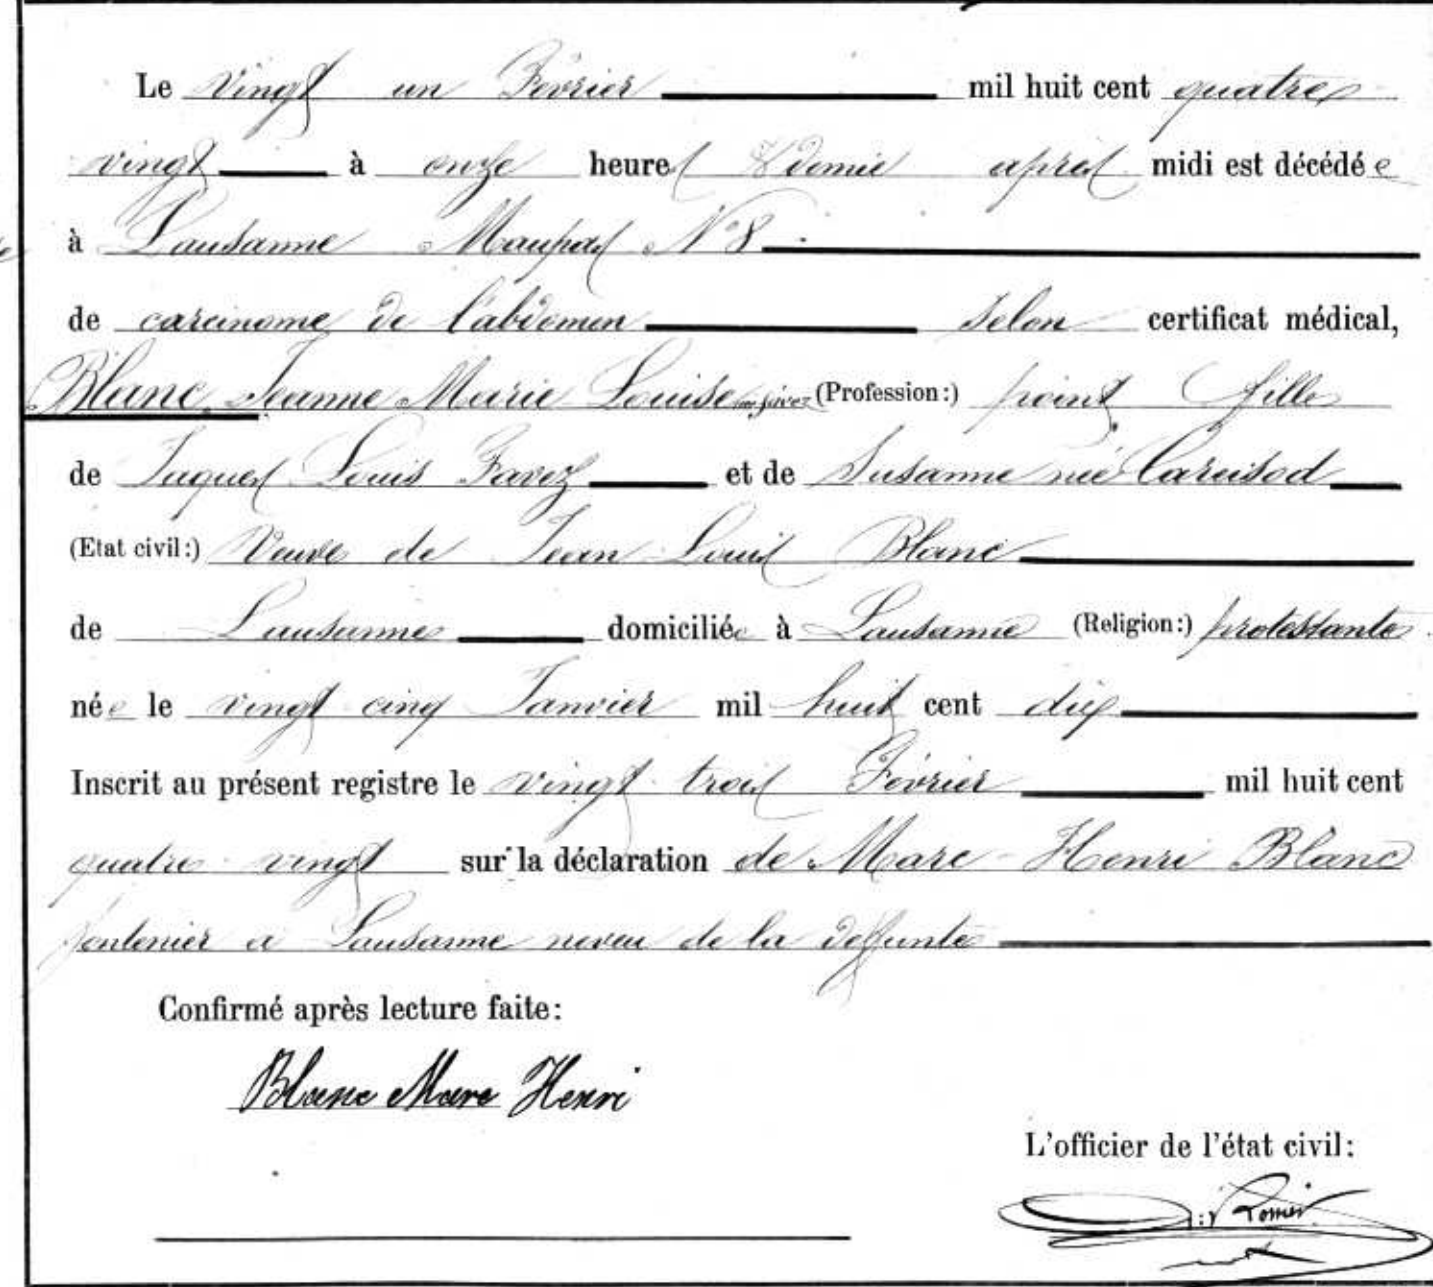 Le Vingt un Février mil huit cent quatre
vingt à onze heures & demie après midi est décédée
à Lausanne Maupas N° 8
de carcinome de l'abdomen Selon certificat médical,
Blanc, Jeanne Marie Louise (Profession:) point fille
de Jaques Louis Favez et de Susanne née
(Etat civil:) Veuve de Jean Louis Blanc
de Lausanne domiciliée à Lausanne (Religion:) protestante.
née le vingt cinq Janvier mil huit cent dix
Inscrit au présent registre le vingt trois Février mil huit cent
quatre vingt sur la déclaration de Marc-Henri Blanc
fontenier à Lausanne neveu de la deffunte
Confirmé après lecture faite:
Blanc Marc Henri
L'officier de l'état civil: